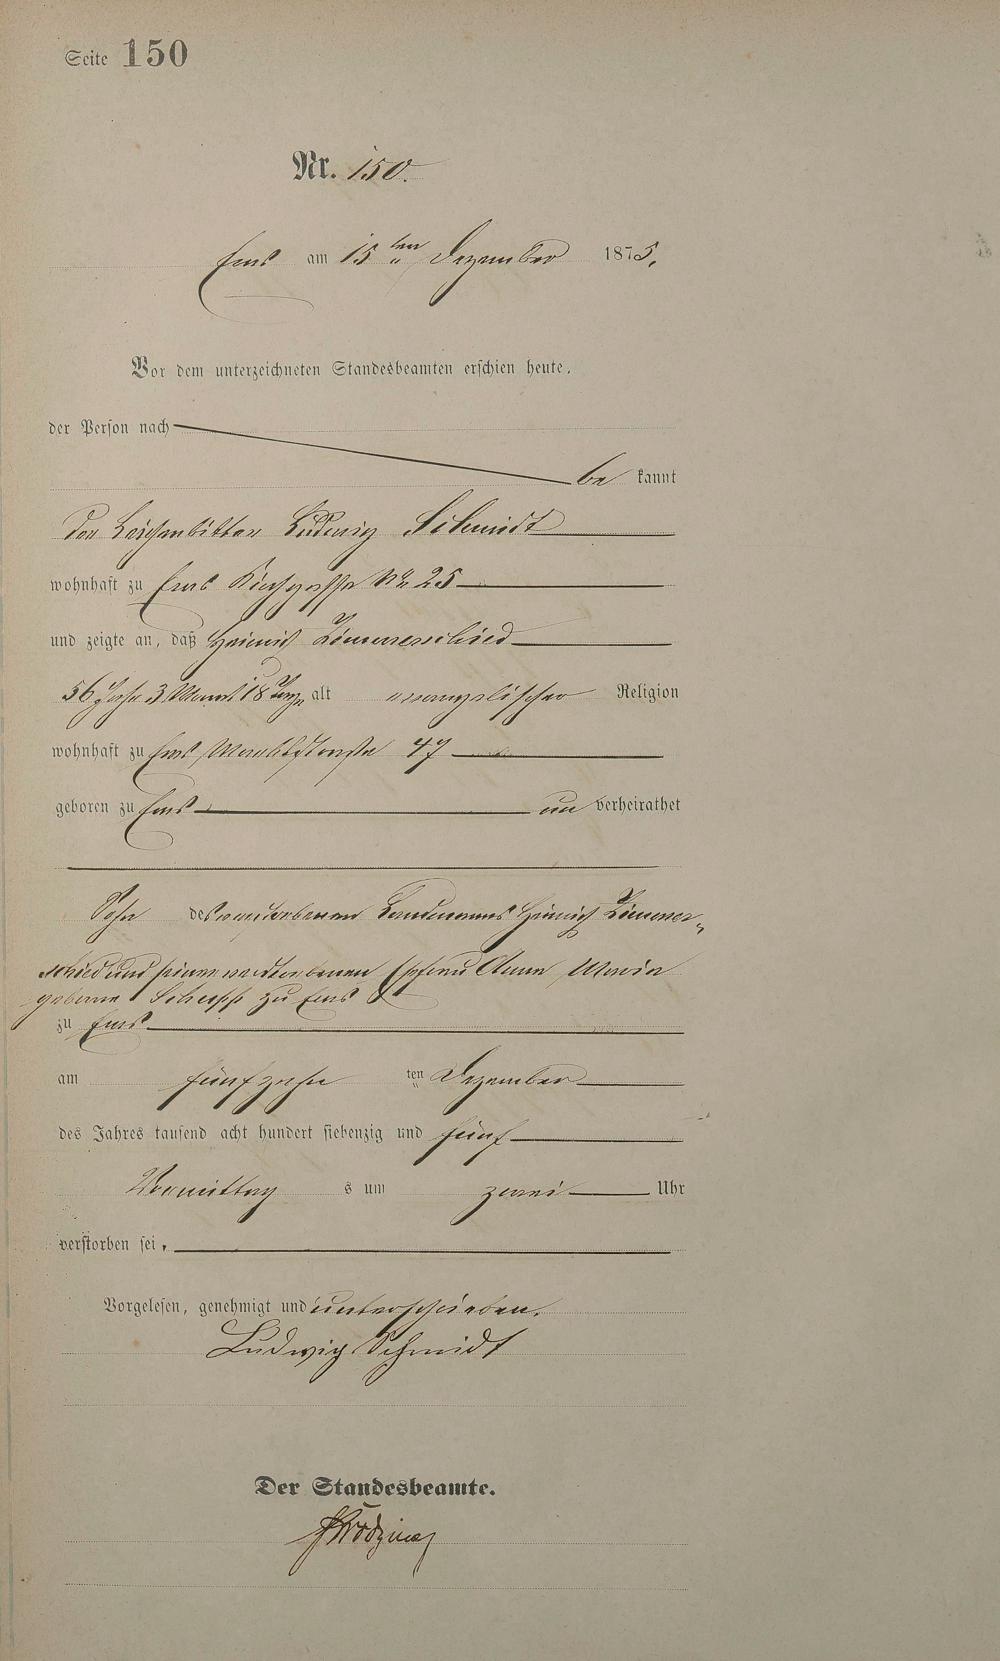 Seite 150
Nr. 150.
Ems am 15ten Dezember 1875.
Vor dem unterzeichneten Standesbeamten erschien heute,
der Person nach
be kannt
der Leichenbitter Ludwig Schmidt
wohnhaft zu Ems Kirchgasse No 25
und zeigte an, daß Heinrich Zimmerschied
56 Jahr 3 Monat 18 Tage alt evangelischer Religion
wohnhaft zu Ems Marktstraße 47
geboren zu Ems un verheirathet
Sohn des verstorbenen Landmanns Heinrich Zimmer-
schied und seiner verstorbenen Ehefrau Anna Maria
geborne zu Ems
zu Ems
am fünfzehn ten Dezember
des Jahres tausend acht hundert siebenzig und fünf
Vormittag s um zwei Uhr
verstorben sei.
Vorgelesen, genehmigt und unterschrieben.
Ludwig Schmidt
Der Standesbeamte.